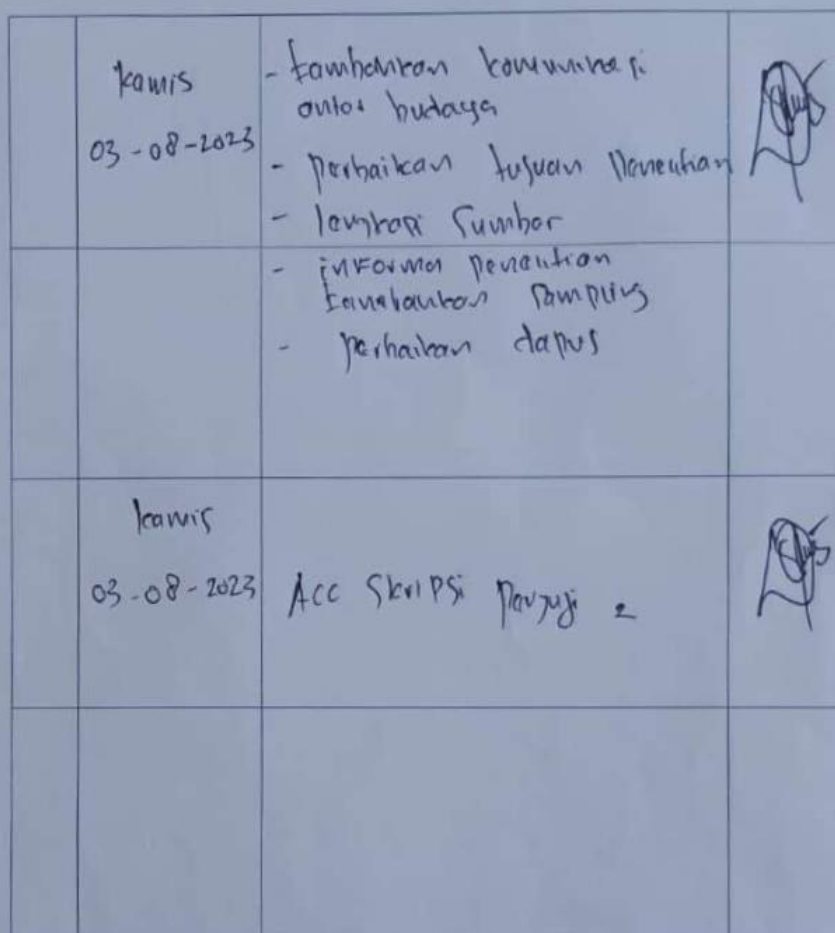 kamis
03-08-2023
- tambahkan komunikasi
antar budaya
- perbaikan tujuan Penelitian
- lengkapi Sumber
- informan penelitian
tambahkan sampling
- perbaikan dapus
kamis
03-08-2023
Acc Skripsi Penguji 2